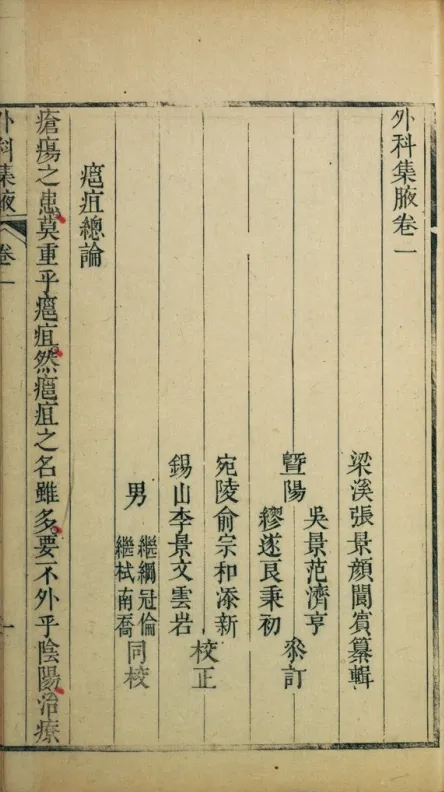 外科集腋卷一
梁溪張景顏閬賓纂輯
吳景范濟亨
暨陽
繆遂良秉初
叅訂
宛陵俞宗和添新
錫山李景文雲岩
校正
男
繼綱冠倫
繼栻南喬
同校
㿈疽總論
瘡瘍之患莫重乎㿈疽然㿈疽之名雖多要不外乎陰陽治療
外科集腋
卷一
一